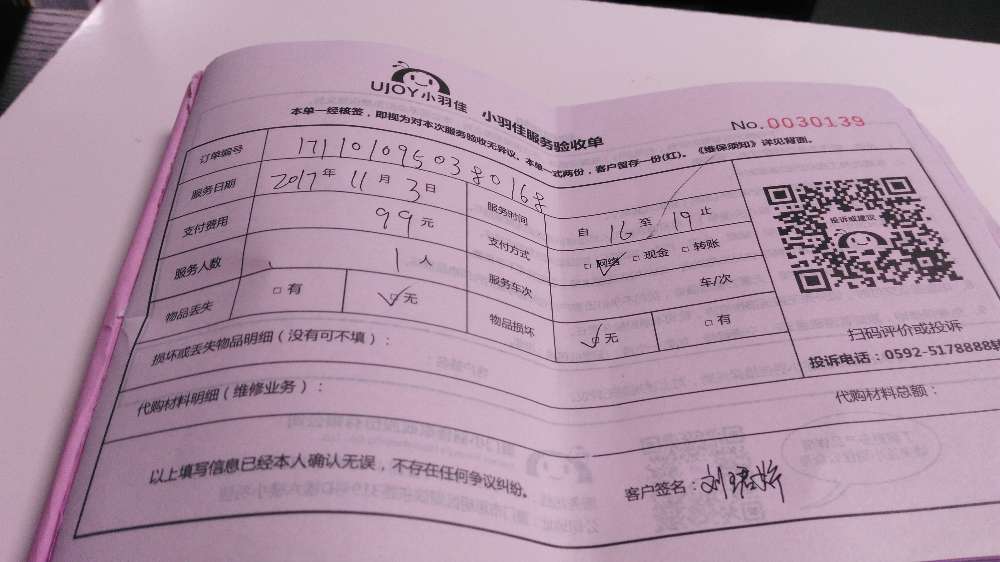 UJOY小羽佳 小羽佳服务验收单
No.0030139
本单一经核签,即视为对本次服务验收无异议。本单一式两份,客户留存一份(红)。《维保须知》详见背面。
订单编号
服务日期 2017年11月3日 服务时间 自16至19止
支付费用 99元 支付方式 □网络 □现金 □转账
服务人数 1人 服务车次 车/次
物品丢失 □有 □无 物品损坏 □无 □有
投诉或建议
扫码评价或投诉
投诉电话:0592-5178888转
损坏或丢失物品明细(没有可不填):
代购材料明细(维修业务): 代购材料总额:
以上填写信息已经本人确认无误,不存在任何争议纠纷。
客户签名: